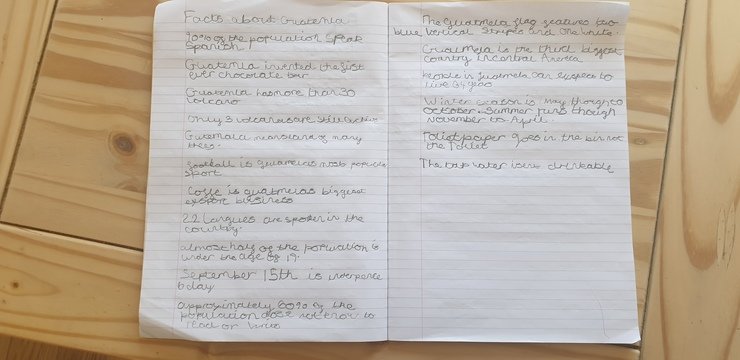 Facts about Guatemla
90% of the population speak
Spanish.
Guatemla invented the first
ever chocolate bar.
Guatemla has more than 30
volcano
Only 3 volcanas are still active
Guatemala means land of many
trees.
football is guatmelas most popular
sport
Coffe is guatmelas biggest
export business
22 Langues are spoken in the
country.
almost half of the population is
under the age of 19.
September 15th is indepence
day
approximately 60% of the
population dose not know to
read or
The Guatmela flag features two
blue vertical stripes and one white.
is the third biggest
country in central America
People in guatmela can expect to
live
Winter season is may though to
October. Summer runs though
November to April.
paper goes in the bin not
the toilet
The tap water isn't drinkable